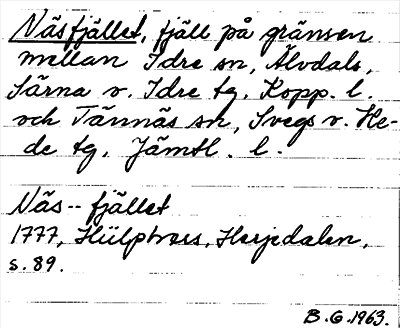 Näsfjället, fjäll på gränsen
mellan Idre sn, Älvdals,
Särna o. Idre tg. Kopp. l.
och Tännäs sn, Svegs o. He-
de tg. Jämtl. l.
Näs-- fjället
1777, Hülphers, Herjedalen,
s. 89.
B.G.1963.